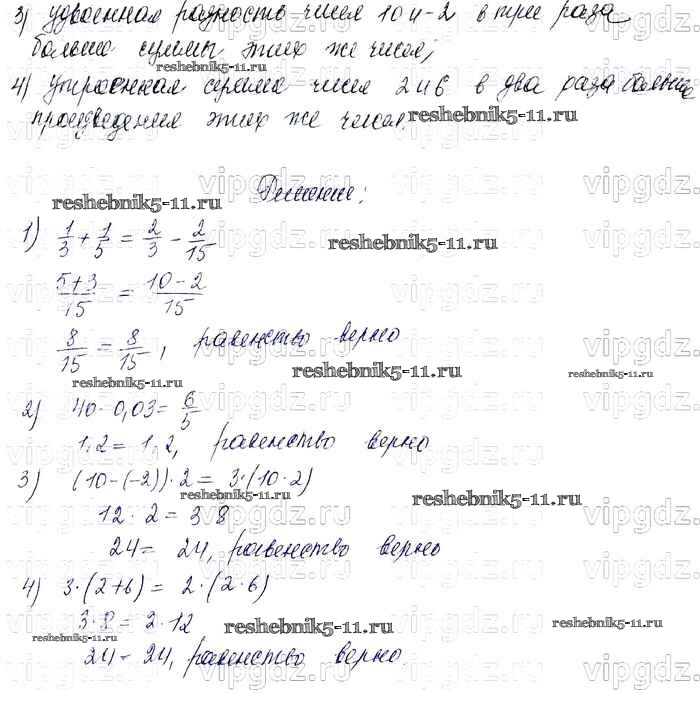 3) удвоенная разность чисел 10 и -2 в три раза
больше суммы этих же чисел;
4) утроенная сумма чисел 2 и 6 в два раза больше
произведения этих же чисел.
reshebnik5-11.ru
Решение:
reshebnik5-11.ru
1) 1/3 + 1/5 = 2/3 - 2/15
reshebnik5-11.ru
5+3/15 = 10-2/15
8/15 = 8/15, равенство верно
reshebnik5-11.ru
reshebnik5-11.ru
2) 40 · 0,03 = 6/5
1,2 = 1,2, равенство верно
3) (10-(-2))·2 = 3·(10·2)
reshebnik5-11.ru
reshebnik5-11.ru
12 · 2 = 3·8
24 = 24, равенство верно
4) 3·(2+6) = 2·(2·6)
3·8 = 2·12
reshebnik5-11.ru
reshebnik5-11.ru
24 = 24, равенство верно.
vipgdz.ru